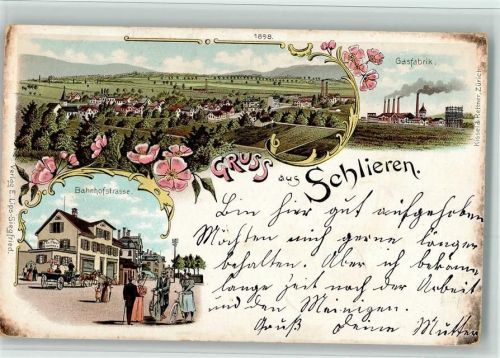 1898.
Gasfabrik.
Kissel & Rettner, Zürich.
Gruss
aus Schlieren.
Bahnhofstrasse.
Verlag E. Lips-Siegfried.
Bin hier gut aufgehoben
Möchten mich gerne länger
behalten. Aber ich bekomme
lange Zeit nach der Arbeit
und den Meinigen.
Gruß deine Mutter